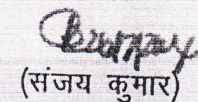 (संजय कुमार)